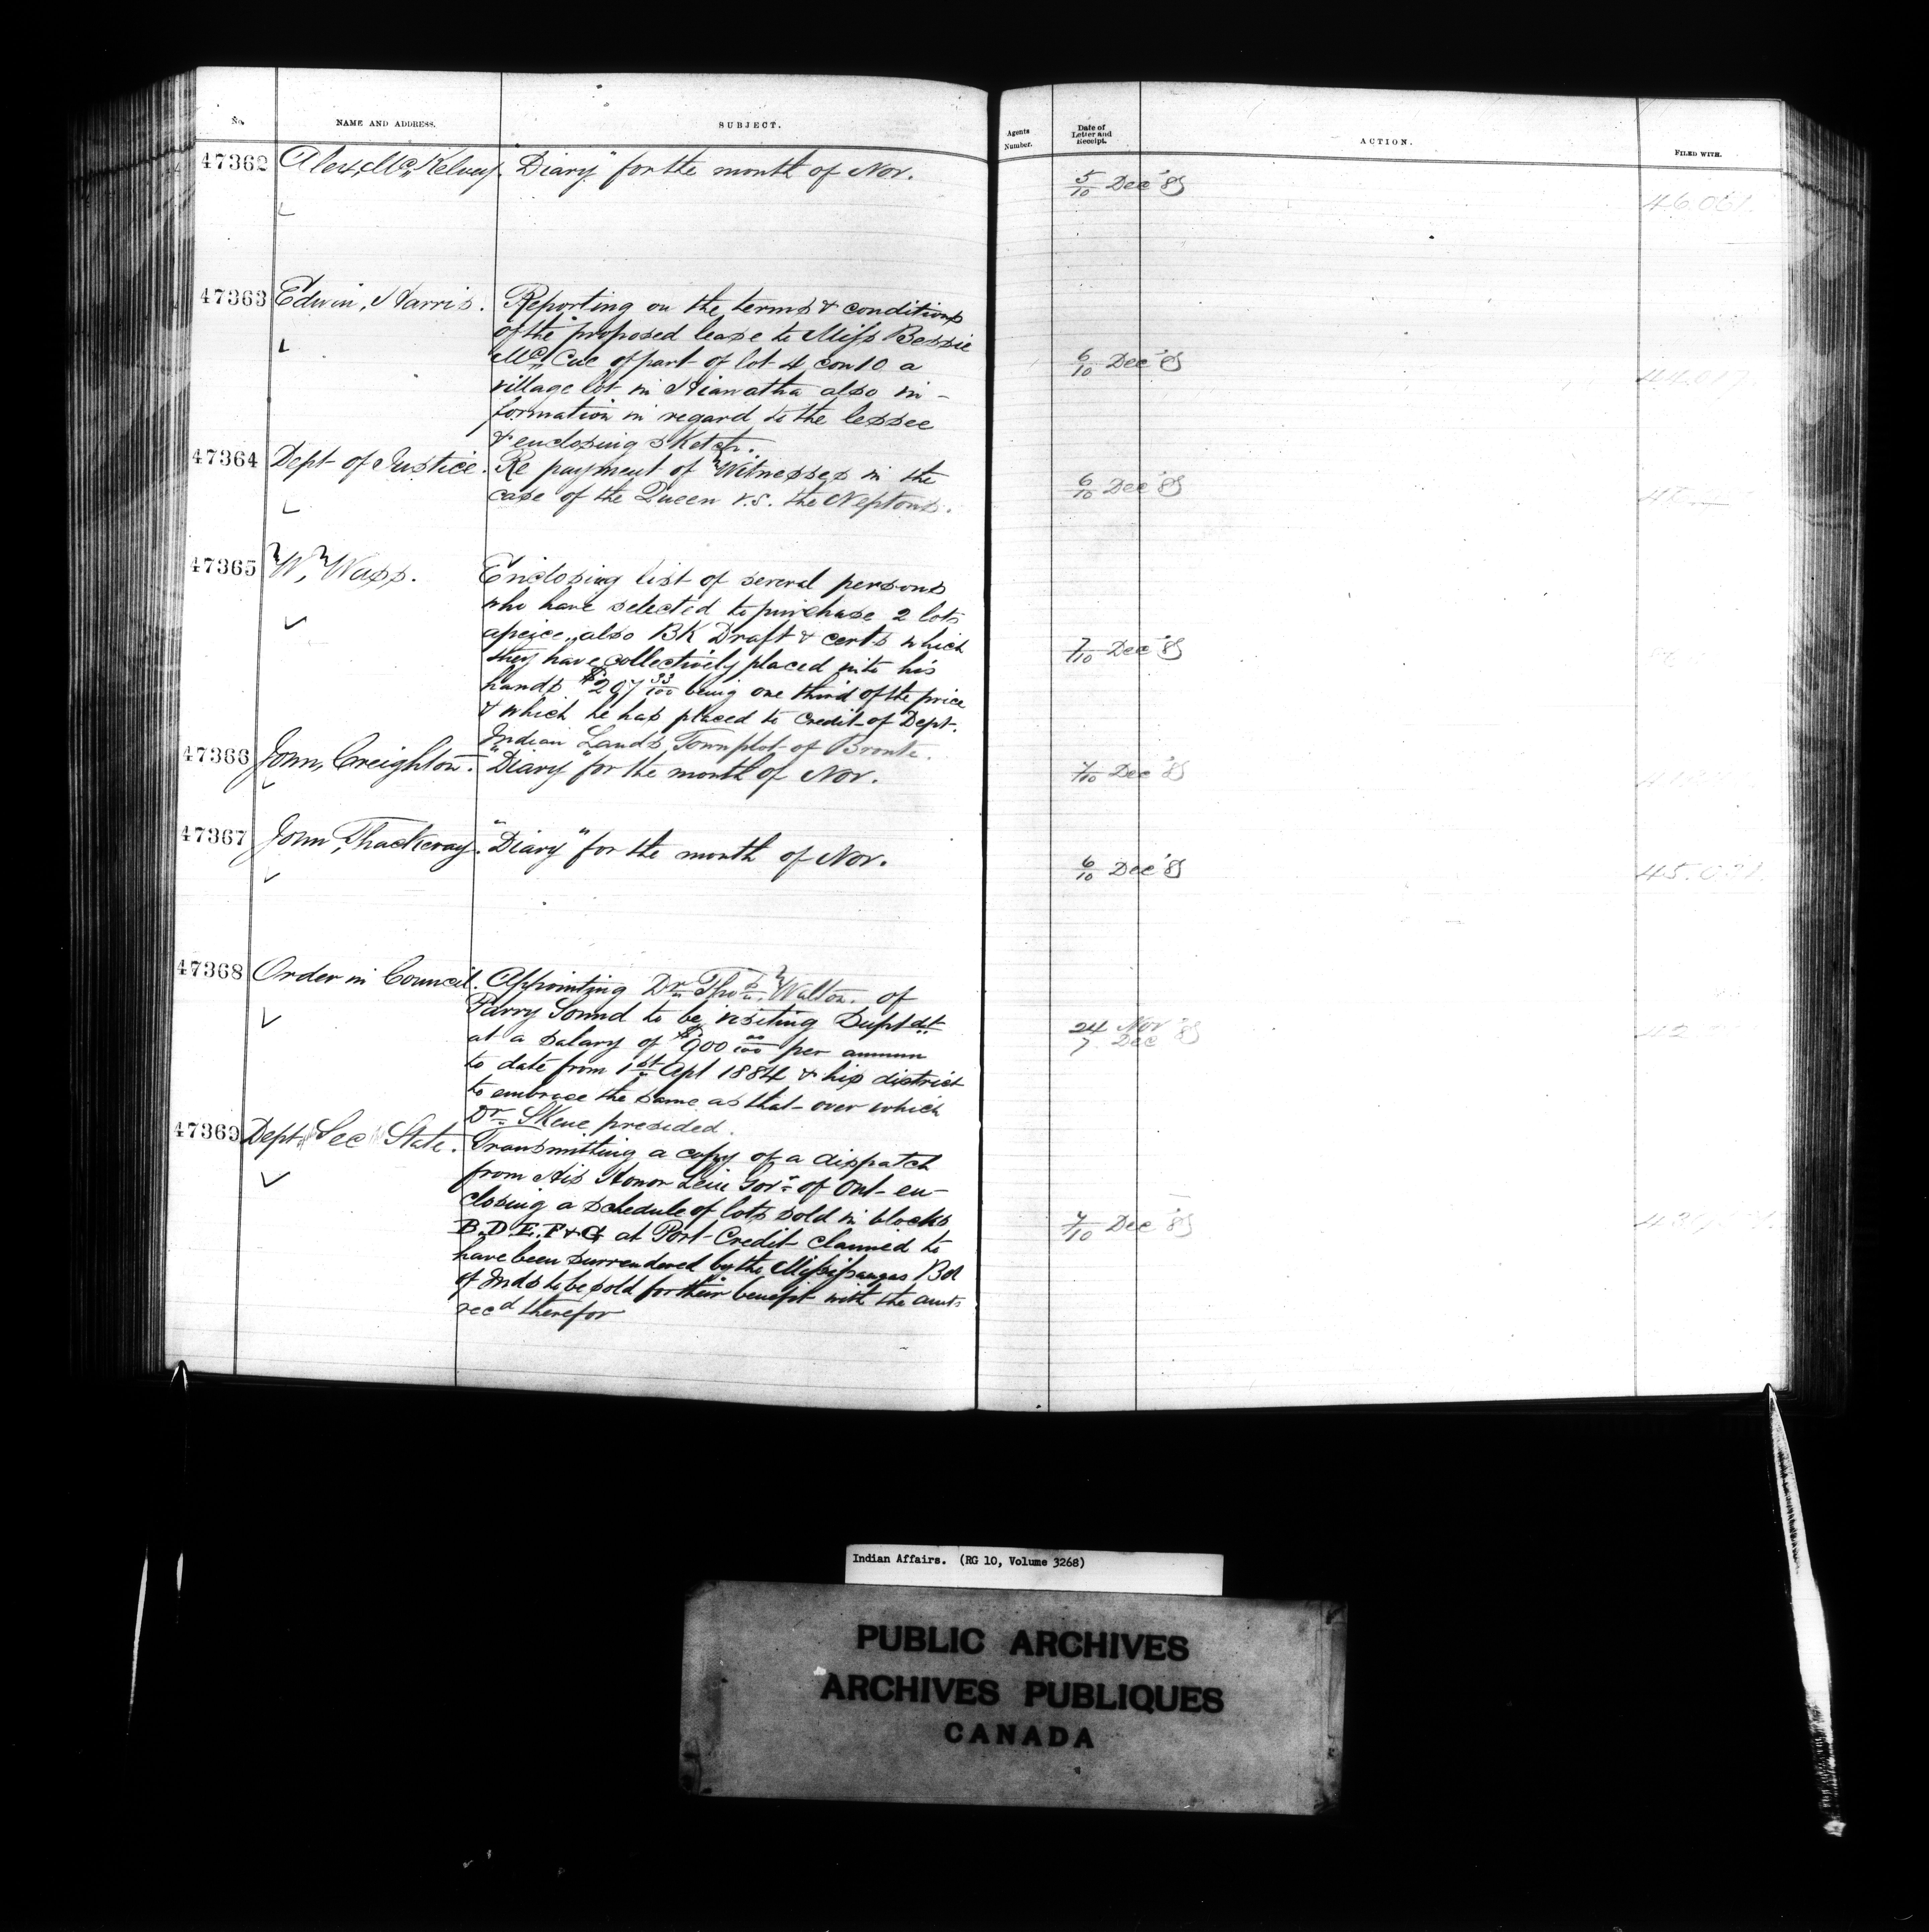 No. NAME AND ADDRESS. SUBJECT. Agents Number. Date of Letter and Receipt. ACTION. FILED WITH.
47362 Alex. McKelvey. "Diary" for the month of Nov. 5/10 Dec '85 46.061.
47363 Edwin, Harris. Reporting on the terms & conditions
of the proposed lease to Miss Bessie
McCue of part of lot 4 con 10 a 6/10 Dec '85
village lot in Hiawatha also in-
formation in regard to the lessee
& enclosing sketch.
47364 Dept of Justice. Re payment of Witnesses in the
case of the Queen v.s. the Neptons. 6/10 Dec '85
47365 W, Wass. Enclosing list of several persons
who have selected to purchase 2 lots
apeice, also BK Draft & certs which
they have collectively placed into his 7/10 Dec '85
hands $297 33/100 being one third of the price
& which he has placed to credit of Dept.
Indian Lands, Townplot of Bronte.
47366 John, Creighton. "Diary" for the month of Nov. 7/10 Dec '85
47367 John, Thackeray. "Diary" for the month of Nov. 6/10 Dec '85
47368 Order in Council. Appointing Dr. Thos. Walton. of
Parry Sound to be visiting Suptdt
at a salary of $900 00/100 per annum 24 Nov 7 Dec '85
to date from 1st Apl 1884 & his district
to embrace the same as that over which
Dr. Skene presided.
47369 Dept Sec State. Transmitting a copy of a dispatch
from His Honor Lieu Gov. of Ont en-
closing a schedule of lots sold in blocks
B.D.E.F & G at Port Credit claimed to 7/10 Dec '85
have been surrendered by the Missisaugas Bd
of Inds to be sold for their benefit with the amts
recd therefor
Indian Affairs. (RG 10, Volume 3268)
PUBLIC ARCHIVES
ARCHIVES PUBLIQUES
CANADA